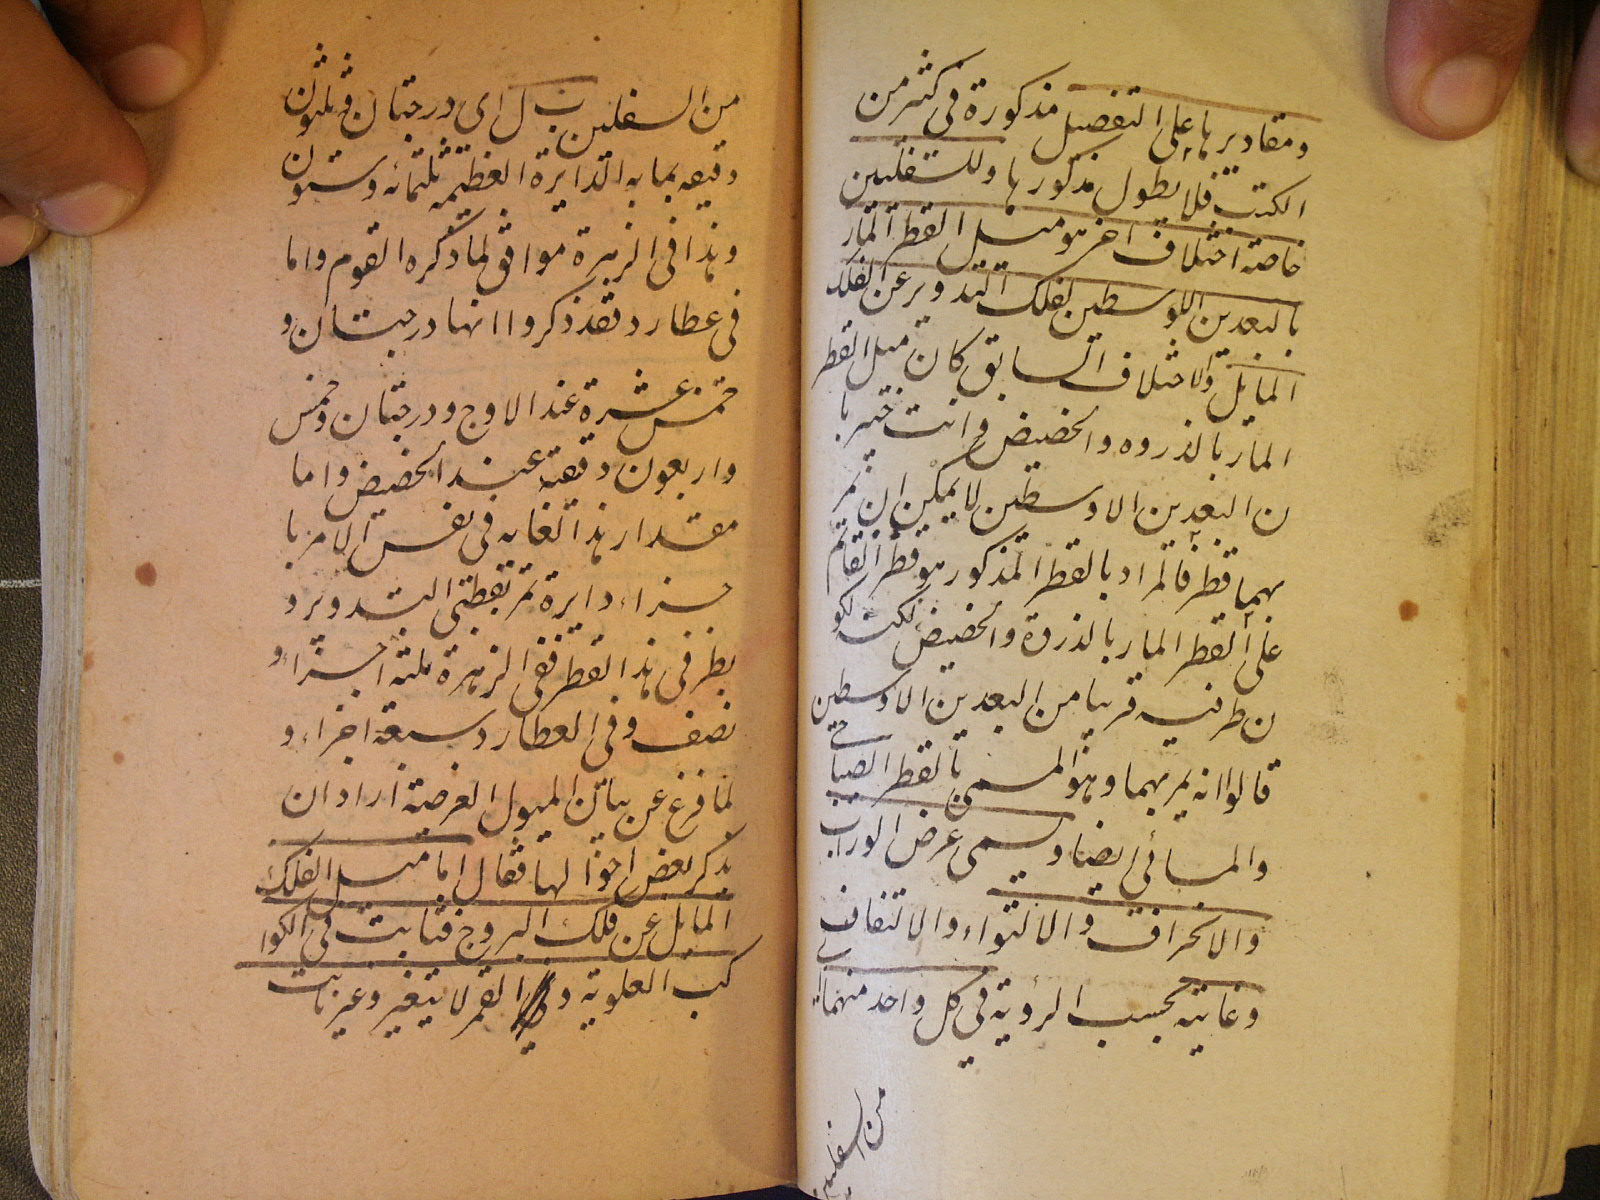 ومقاديرها على التفصيل مذكورة في كثير من
الكتب فلا يطول مذكورها وللسفليين
خاصة اختلاف اخر هو ميل القطر المار
بالبعدين الاوسطين لفلك التدوير عن الفلك
المايل والاختلاف السابق كان ميل القطر
المار بالذروه والحضيض وانت خبير با
ن البعدين الاوسطين لا يمكن ان يمر
بهما قطر فالمراد بالقطر المذكور هو قطر القائم
على القطر المار بالذروة والحضيض لكن لكو
ن طرفيه قريبا من البعدين الاوسطين
قالوا انه يمر بهما وهو المسمى بالقطر الصباحي
والمسائي ايضا ويسمى عرض الوراب
والانحراف والالتواء والالتفاف
وغايته بحسب الرؤية في كل واحد منهما
من السفليين
من السفليين ب ل اى درجتان وثلثون
دقيقه بما به الدايرة العظيمه ثلثمائه وستون
وهذا في الزهرة موافق لما ذكره القوم واما
في عطارد فقد ذكروا انها درجتان و
خمس عشرة عند الاوج ودرجتان وخمس
واربعون دقيقة عند الحضيض واما
مقدار هذا الغايه في نفس الامر با
جزاء دايرة تمر بنقطتي التدوير و
بطرفي هذا القطر ففي الزهرة ثلثة اجزاء و
نصف وفي العطارد سبعة اجزاء و
لما فرغ عن بيان الميول العرضية اراد ان
يذكر بعض احوالها فقال اما ميل الفلك
المايل عن فلك البروج فثابت في الكوا
كب العلوية و القمر لا يتغير وغير ثابت